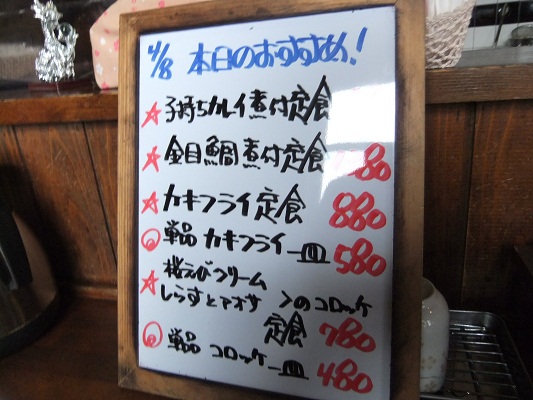 4/8 本日のおすすめ!
☆子持ちカレイ煮付定食
☆金目鯛煮付定食 80
☆カキフライ定食 880
単品 カキフライ一皿 580
☆桜えびクリーム
しらすとアオサ >のコロッケ
定食 780
単品 コロッケ一皿 480